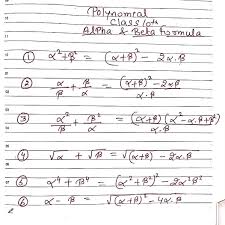 Polynomial
Class 10th
Alpha & Beta Formula
① α² + β² = (α+β)² - 2α.β
② α/β + β/α = (α+β)² - 2αβ / α.β
③ α²/β + β²/α = (α+β)(α² - α.β + β²) / α.β
④ √α + √β = √(α+β) - 2α.β
⑤ α⁴ + β⁴ = (α² + β²)² - 2α²β²
⑥ α - β = √(α+β)² - 4α.β